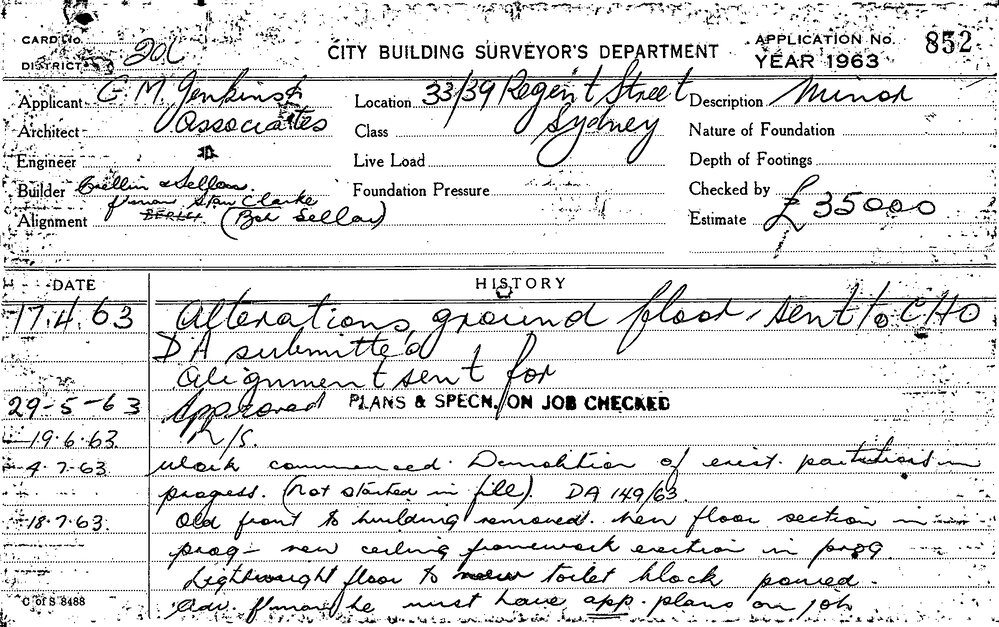 CARD No.
DISTRICT 20C
CITY BUILDING SURVEYOR'S DEPARTMENT
APPLICATION No. 852
YEAR 1963
Applicant C M. Jenkins &
Architect Associates
Engineer
Builder & Sellar.
f'man Stan Clarke
Alignment (Bob Sellar)
Location 33/39 Regent Street
Class Sydney
Live Load
Foundation Pressure
Description Minor
Nature of Foundation
Depth of Footings
Checked by
Estimate £35000
DATE HISTORY
17.4.63 Alterations, ground floor, sent to CHO
DA submitted
Alignment sent for
29-5-63 Approved PLANS & SPECN. ON JOB CHECKED
19.6.63. N/S.
4.7.63. Work commenced. Demolition of exist. partitions in
progress. (Not started in full). DA 149/63.
18.7.63. Old front to building removed. New floor section in
prog - new ceiling framework erection in prog.
Lightweight floor to new toilet block poured.
Adv. f'man he must have app. plans on job
C of S 8488